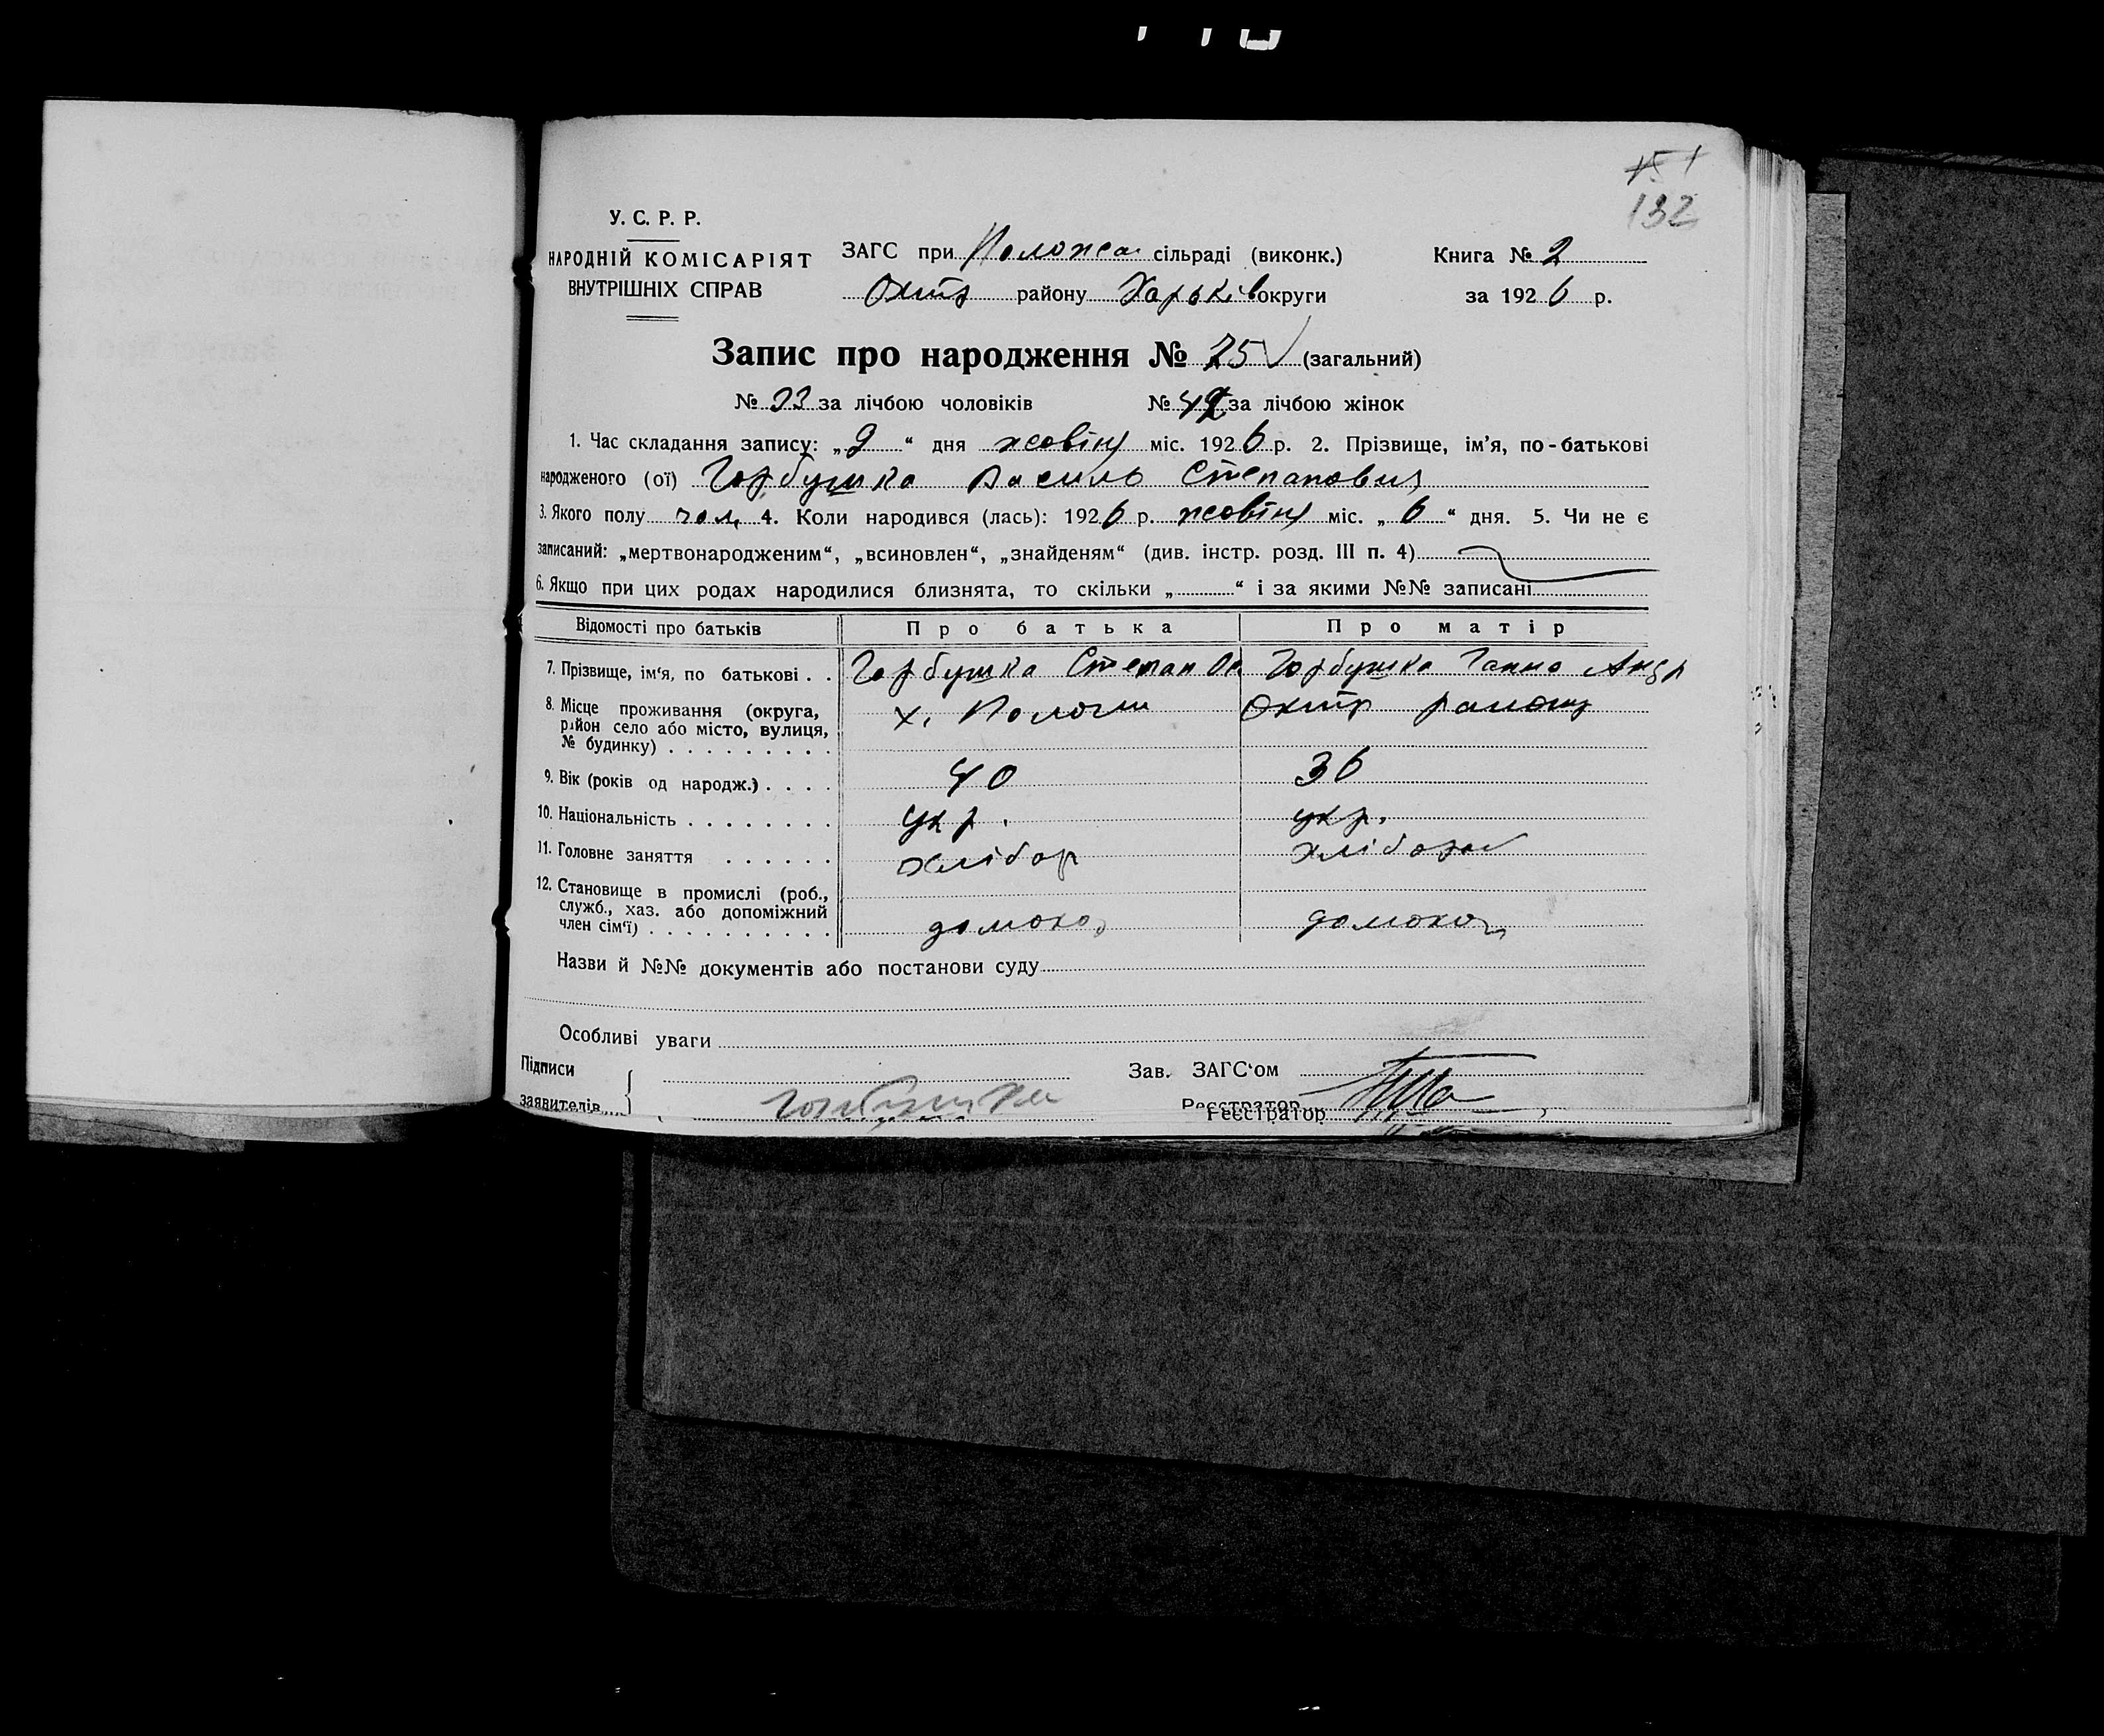 132
У. С. Р. Р.
НАРОДНІЙ КОМІСАРІЯТ
ВНУТРІШНІХ СПРАВ
ЗАГС при сільраді (виконк.)
Охт району Харьків округи
Книга № 2
за 1926 р.
Запис про народження № 75 (загальний)
№ 33 за лічбою чоловіків № 42 за лічбою жінок
1. Час складання запису: „9“ дня жовтня міс. 1926 р. 2. Прізвище, ім'я, по-батькові
народженого (ої) Горбушка Василь Степанович
3. Якого полу чол. 4. Коли народився (лась): 1926 р. жовтня міс. „6“ дня. 5. Чи не є
записаний: „мертвонародженим“, „всиновлен“, „знайденям“ (див. інстр. розд. III п. 4)
6. Якщо при цих родах народилися близнята, то скільки „ “ і за якими №№ записані
Відомості про батьків Про батька Про матір
7. Прізвище, ім'я, по батькові . . Горбушка Степан Горбушка Ганна Андр
8. Місце проживання (округа,
район село або місто, вулиця,
№ будинку) . . . . . . . . . х. Охтир району
9. Вік (років од народж.) . . . . 40 36
10. Національність . . . . . . . . укр. укр.
11. Головне заняття . . . . . . хлібор хлібор
12. Становище в промислі (роб.,
служб., хаз. або допоміжний
член сім'ї) . . . . . . . . . . домохоз домохоз
Назви й №№ документів або постанови суду
Особливі уваги
Підписи
заявителів
Горбушка
Зав. ЗАГС'ом
Реєстратор
Реєстратор